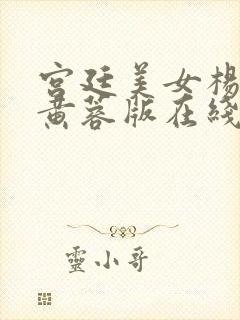 宫廷美女楊
黄蓉版在綫
靈小哥